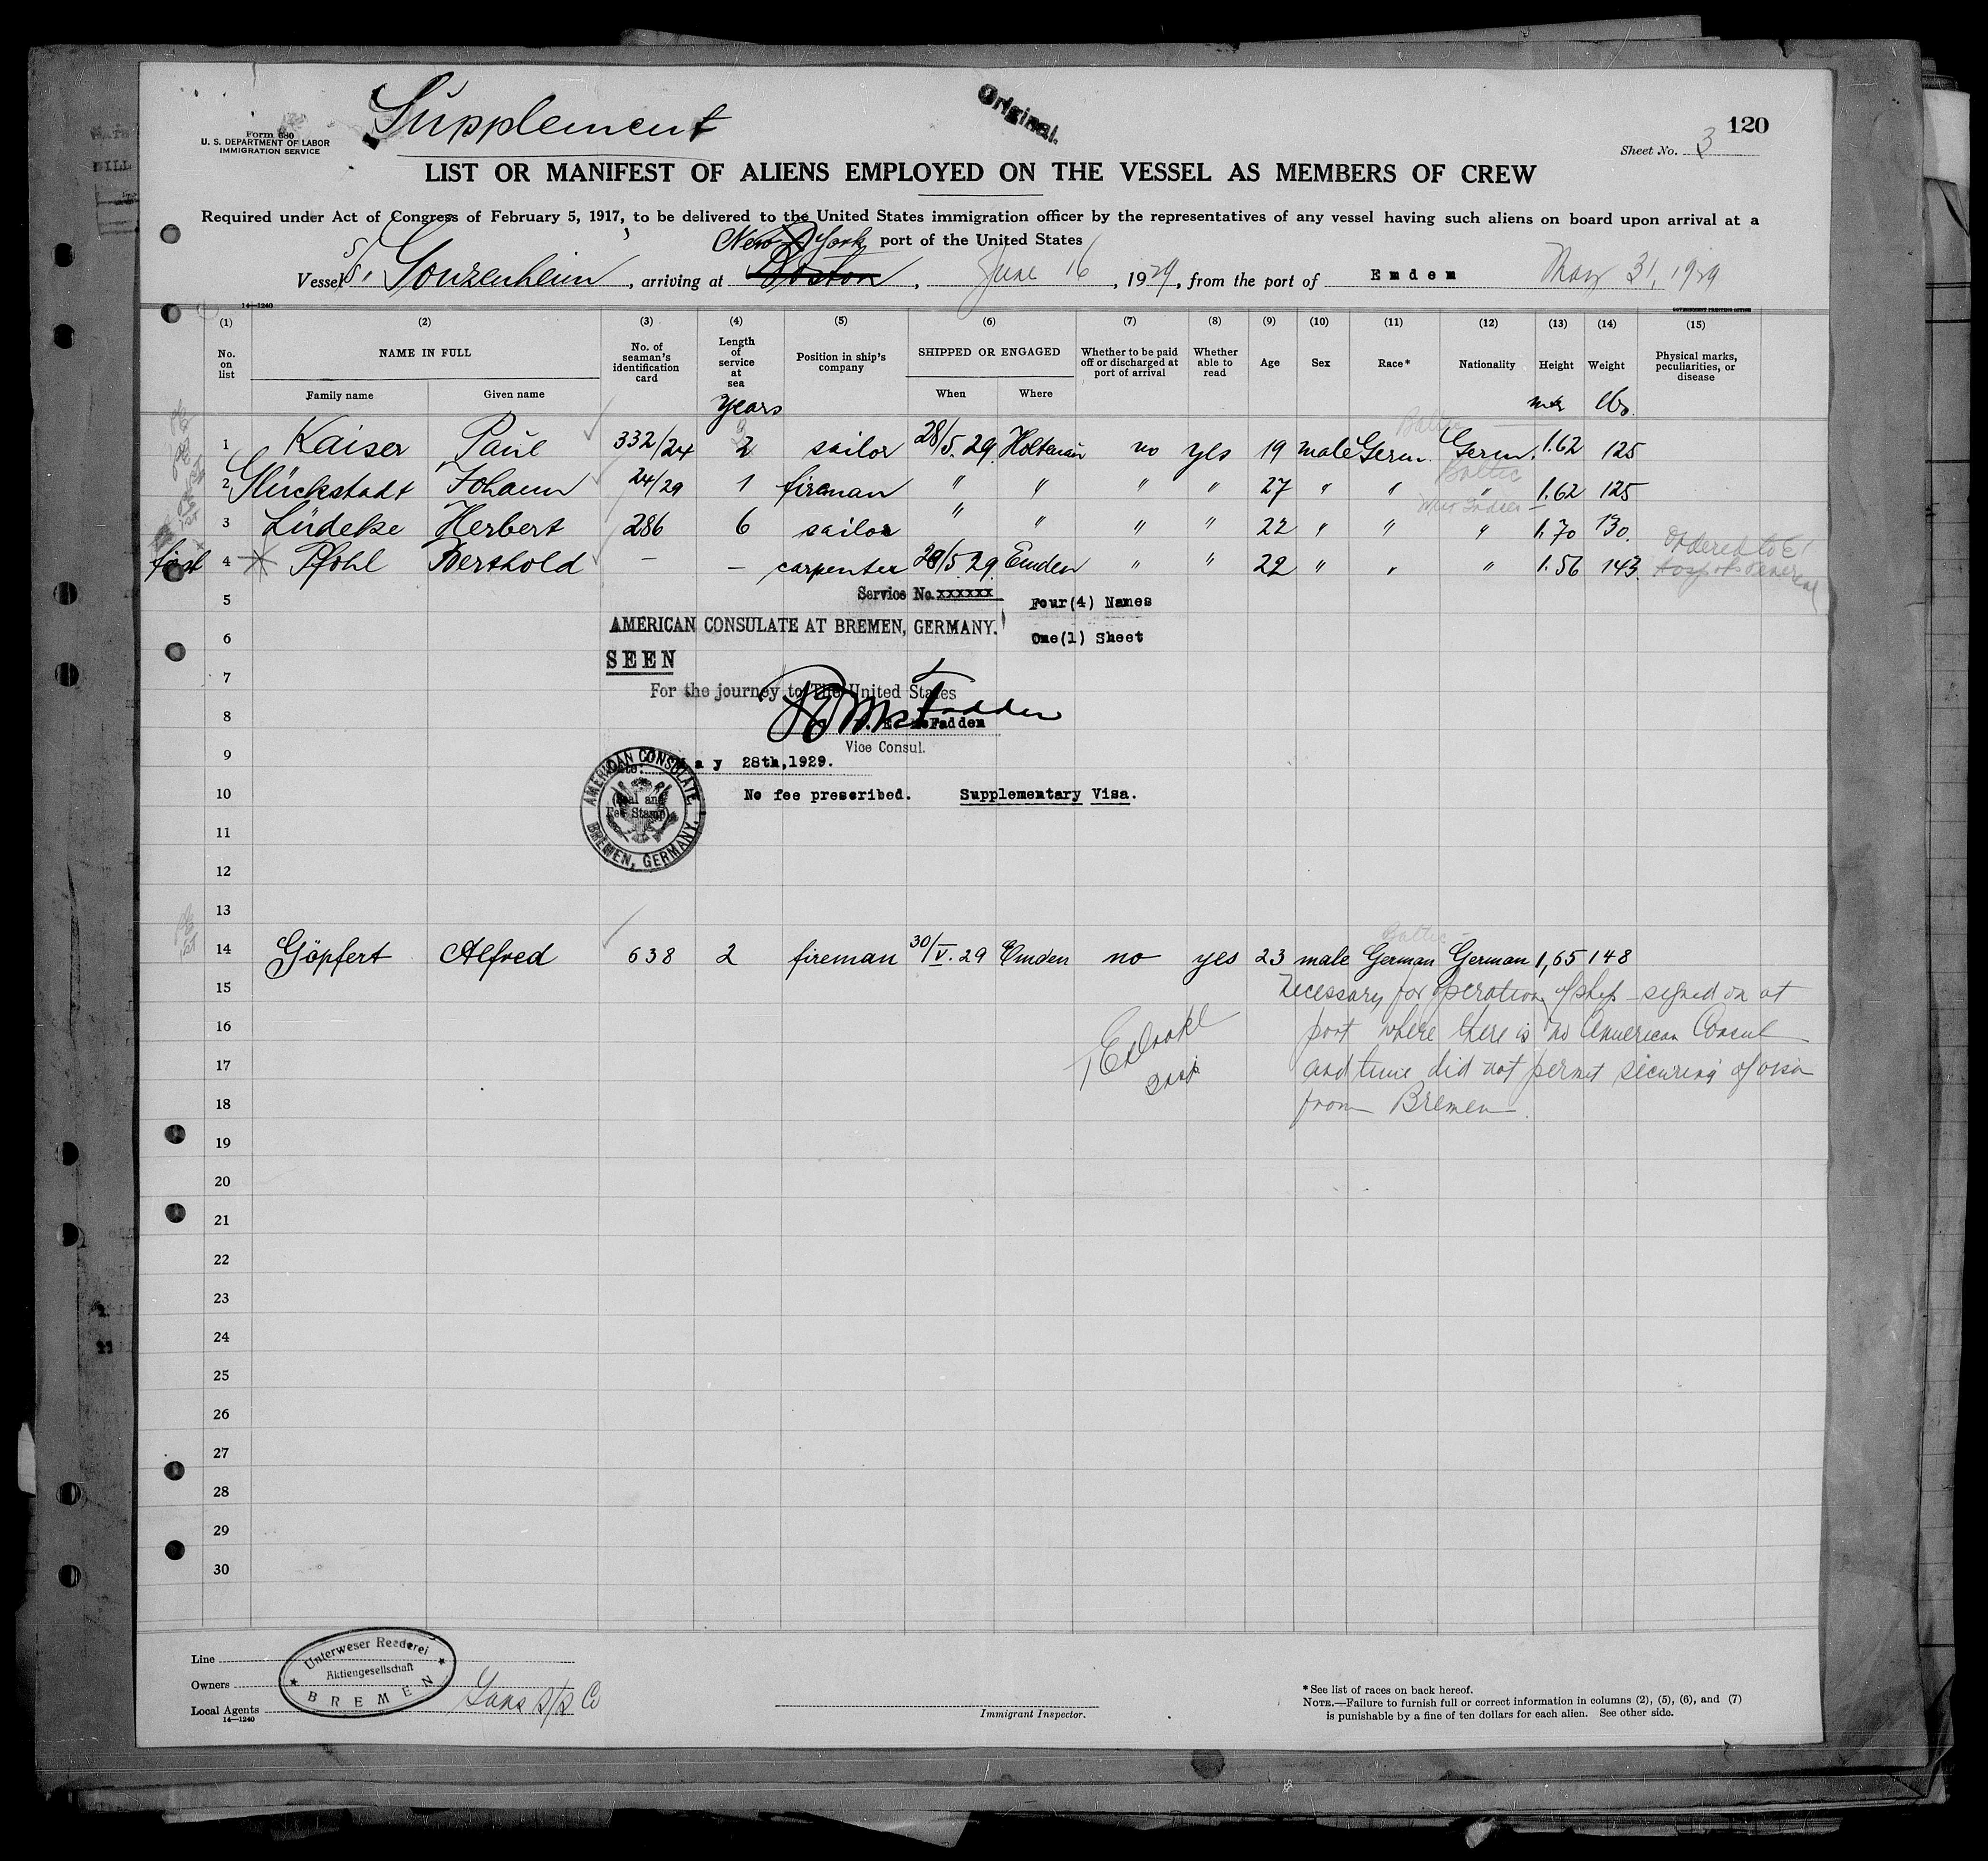 Supplement
Original.
120
Form 680
U. S. DEPARTMENT OF LABOR
IMMIGRATION SERVICE
Sheet No. 3
LIST OR MANIFEST OF ALIENS EMPLOYED ON THE VESSEL AS MEMBERS OF CREW
Required under Act of Congress of February 5, 1917, to be delivered to the United States immigration officer by the representatives of any vessel having such aliens on board upon arrival at a
New York port of the United States
Vessel S/S. Gonzenheim, arriving at Boston, June 16, 1929, from the port of Emden May 31, 1929
14—1240
GOVERNMENT PRINTING OFFICE
(1) (2) (3) (4) (5) (6) (7) (8) (9) (10) (11) (12) (13) (14) (15)
No. on list NAME IN FULL No. of seaman's identification card Length of service at sea Position in ship's company SHIPPED OR ENGAGED Whether to be paid off or discharged at port of arrival Whether able to read Age Sex Race* Nationality Height Weight Physical marks, peculiarities, or disease
Family name Given name When Where
years mtr lbs.
Baltic
1 Kaiser Paul 332/24 2 sailor 28/5.29. Holtenau no yes 19 male Germ. Germ. 1.62 125
Baltic
2 Glückstadt Johann 24/29 1 fireman " " " " 27 " " " 1.62 125
West Indies
3 Lüdeke Herbert 286 6 sailor " " " " 22 " " " 1.70 130.
first 4 Pfohl Berthold — — carpenter 28/5.29. Emden " " 22 " " " 1.56 143. Ordered to E I hosp.
5 Service No. xxxxxx Four(4) Names
6 AMERICAN CONSULATE AT BREMEN, GERMANY. One(1) Sheet
SEEN
7 For the journey to The United States
8 McFadden
Vice Consul.
9 Date: May 28th,1929.
10 No fee prescribed. Supplementary Visa.
(Seal and Fee Stamp)
AMERICAN CONSULATE BREMEN, GERMANY.
11
12
13
Baltic
14 Göpfert Alfred 638 2 fireman 30/V.29 Emden no yes 23 male German German 1,65 148
15 Necessary for operation of ship – signed on at
16 port where there is no American Consul
17 and time did not permit securing of visa
18 from Bremen.
19
20
21
22
23
24
25
26
27
28
29
30
Line
Owners
Local Agents
Unterweser Reederei
Aktiengesellschaft
BREMEN
Gans S/S Co
14—1240
Immigrant Inspector.
*See list of races on back hereof.
NOTE.—Failure to furnish full or correct information in columns (2), (5), (6), and (7)
is punishable by a fine of ten dollars for each alien. See other side.